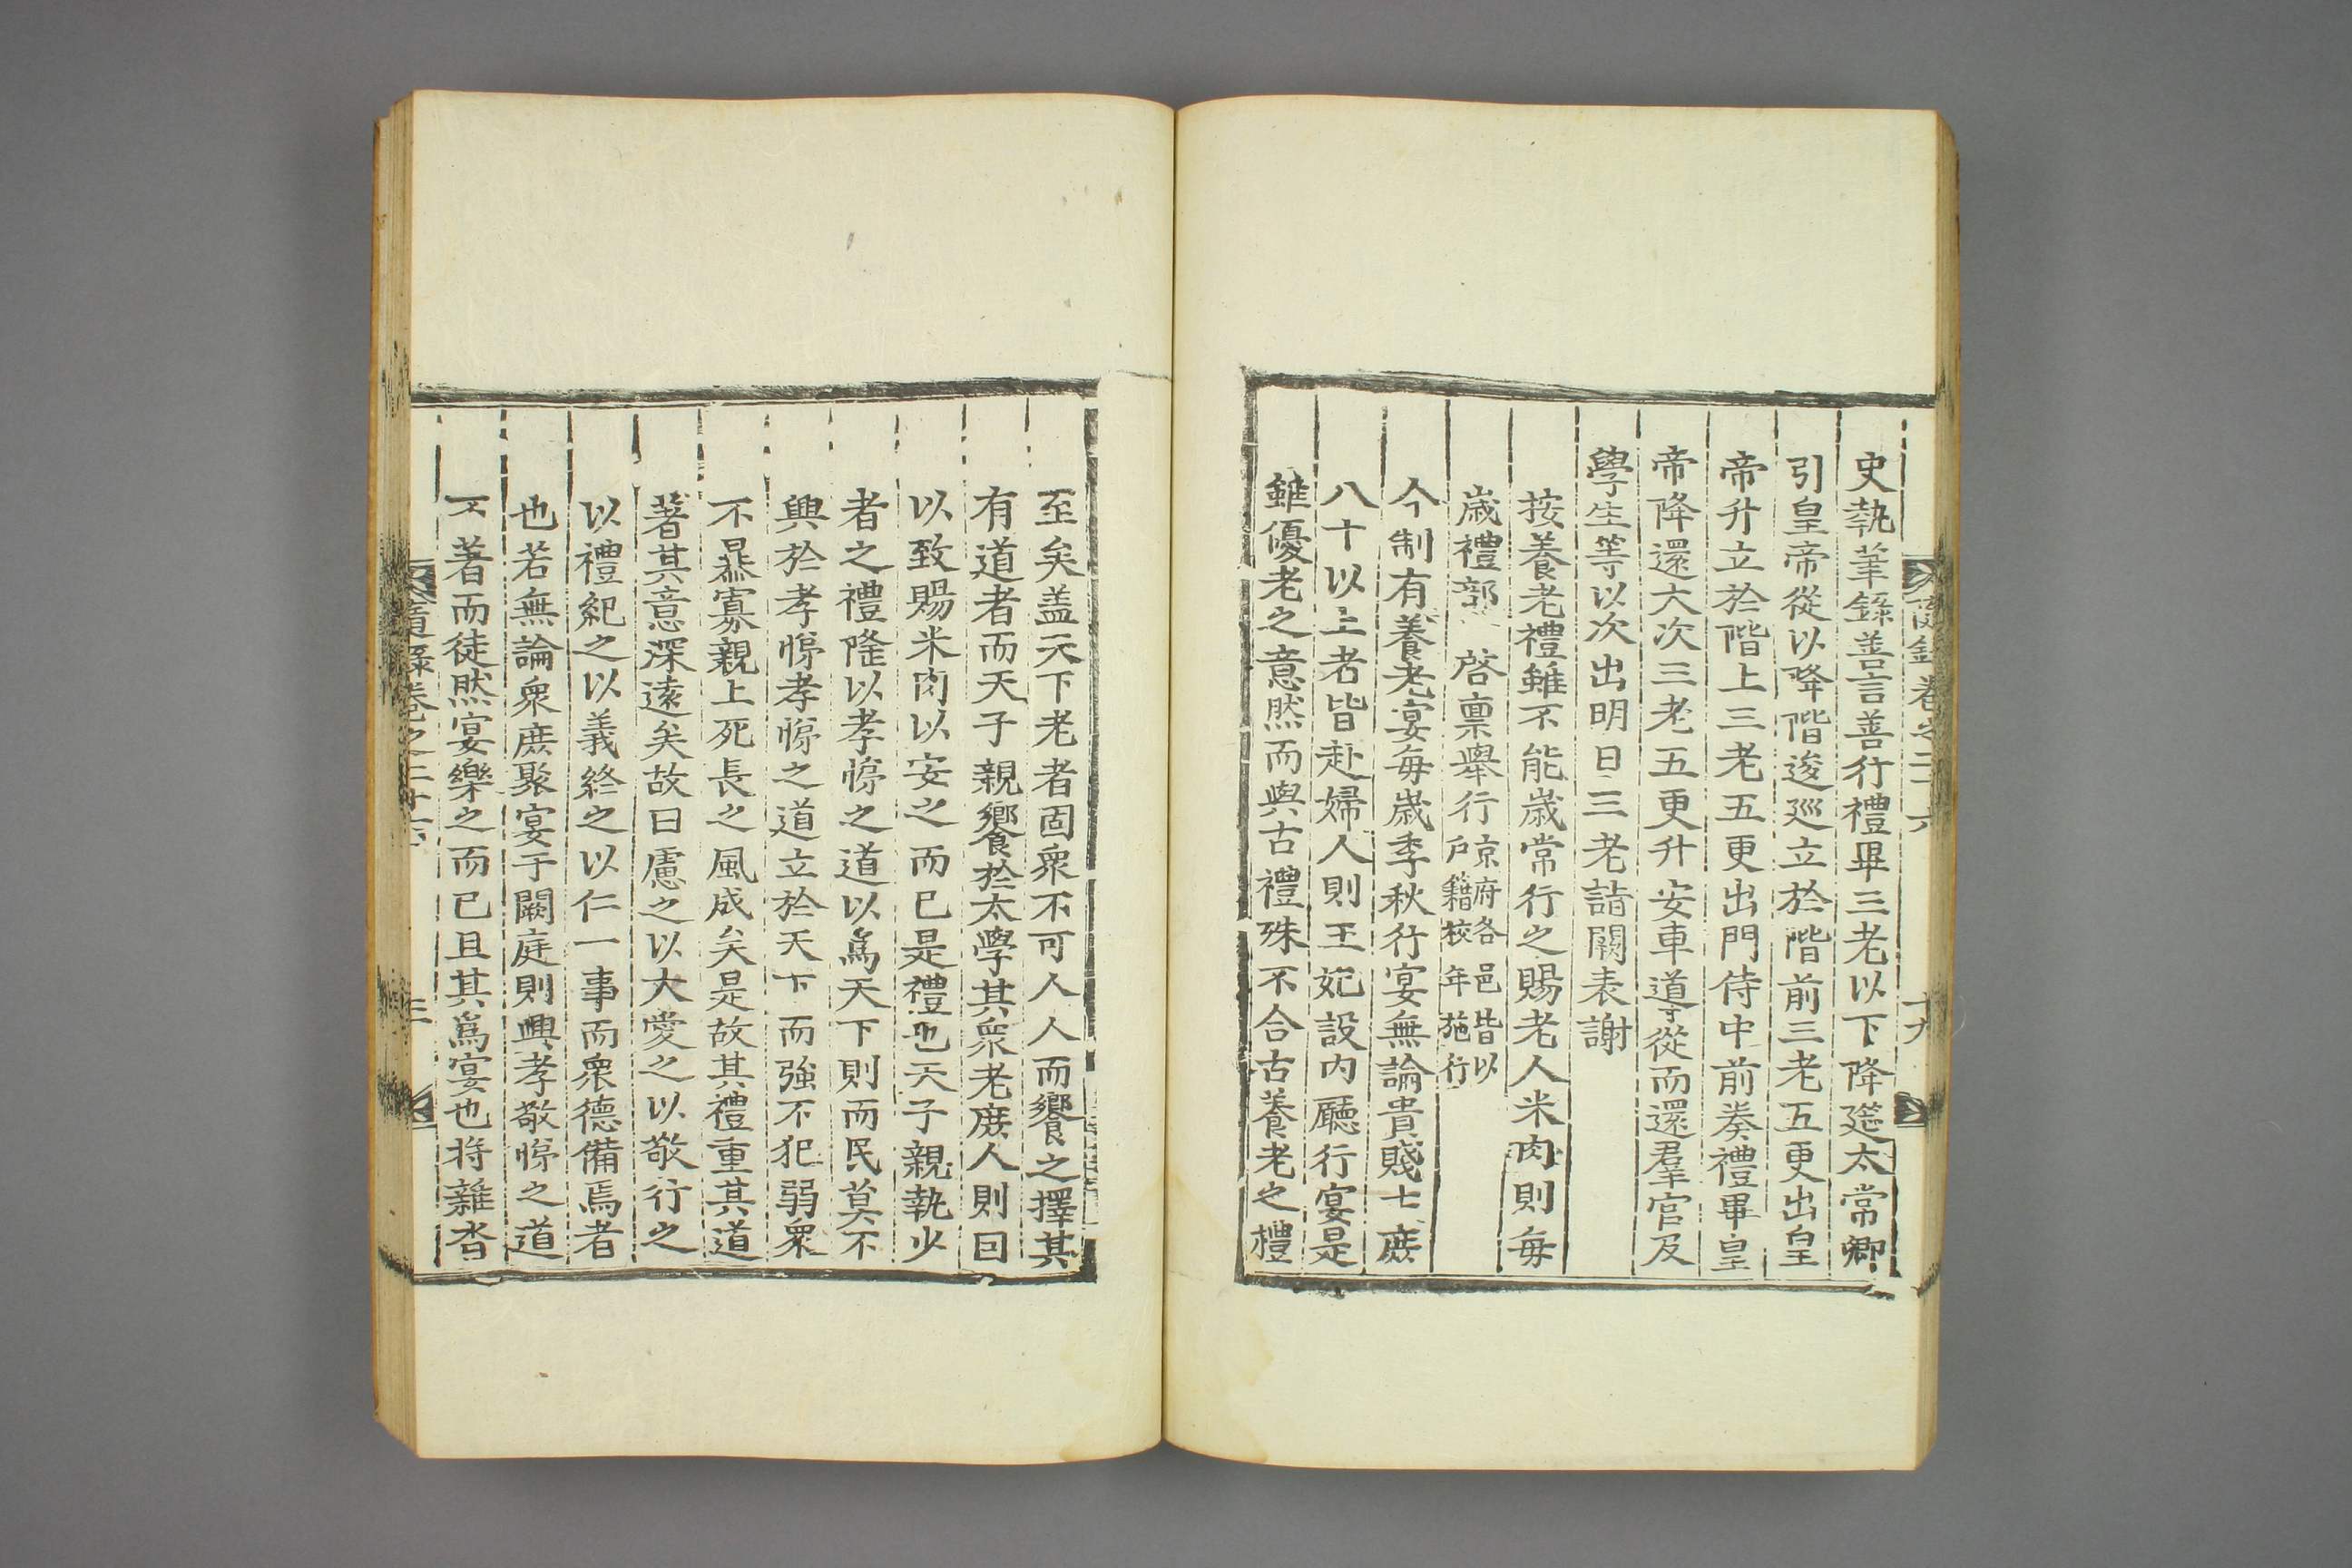 史執筆錄善言善行禮畢三老以下降筵太常卿
引皇帝從以降階逡巡立於階前三老五更出皇
帝升立於階上三老五更出門侍中前奏禮畢皇
帝降還大次三老五更升安車導從而還羣官及
學生等以次出明日三老詣闕表謝
按養老禮雖不能歲常行之賜老人米肉則每
歲禮部啓稟舉行京府各邑皆以
戶籍校年施行
今制有養老宴每歲季秋行宴無論貴賤士庶
八十以上者皆赴婦人則王妃設內廳行宴是
雖優老之意然而與古禮殊不合古養老之禮
至矣盖天下老者固衆不可人人而饗之擇其
有道者而天子親饗於太學其衆老庶人則囙
以致賜米肉以安之而已是禮也天子親執少
者之禮隆以孝悌之道以爲天下則而民莫不
興於孝悌孝悌之道立於天下而强不犯弱衆
不暴寡親上死長之風成矣是故其禮重其道
著其意深遠矣故曰慮之以大愛之以敬行之
以禮紀之以義終之以仁一事而衆德備焉者
也若無論衆庶聚宴于闕庭則興孝敬悌之道
不著而徒然宴樂之而已且其爲宴也將雜沓
隨錄卷之二十六
十九